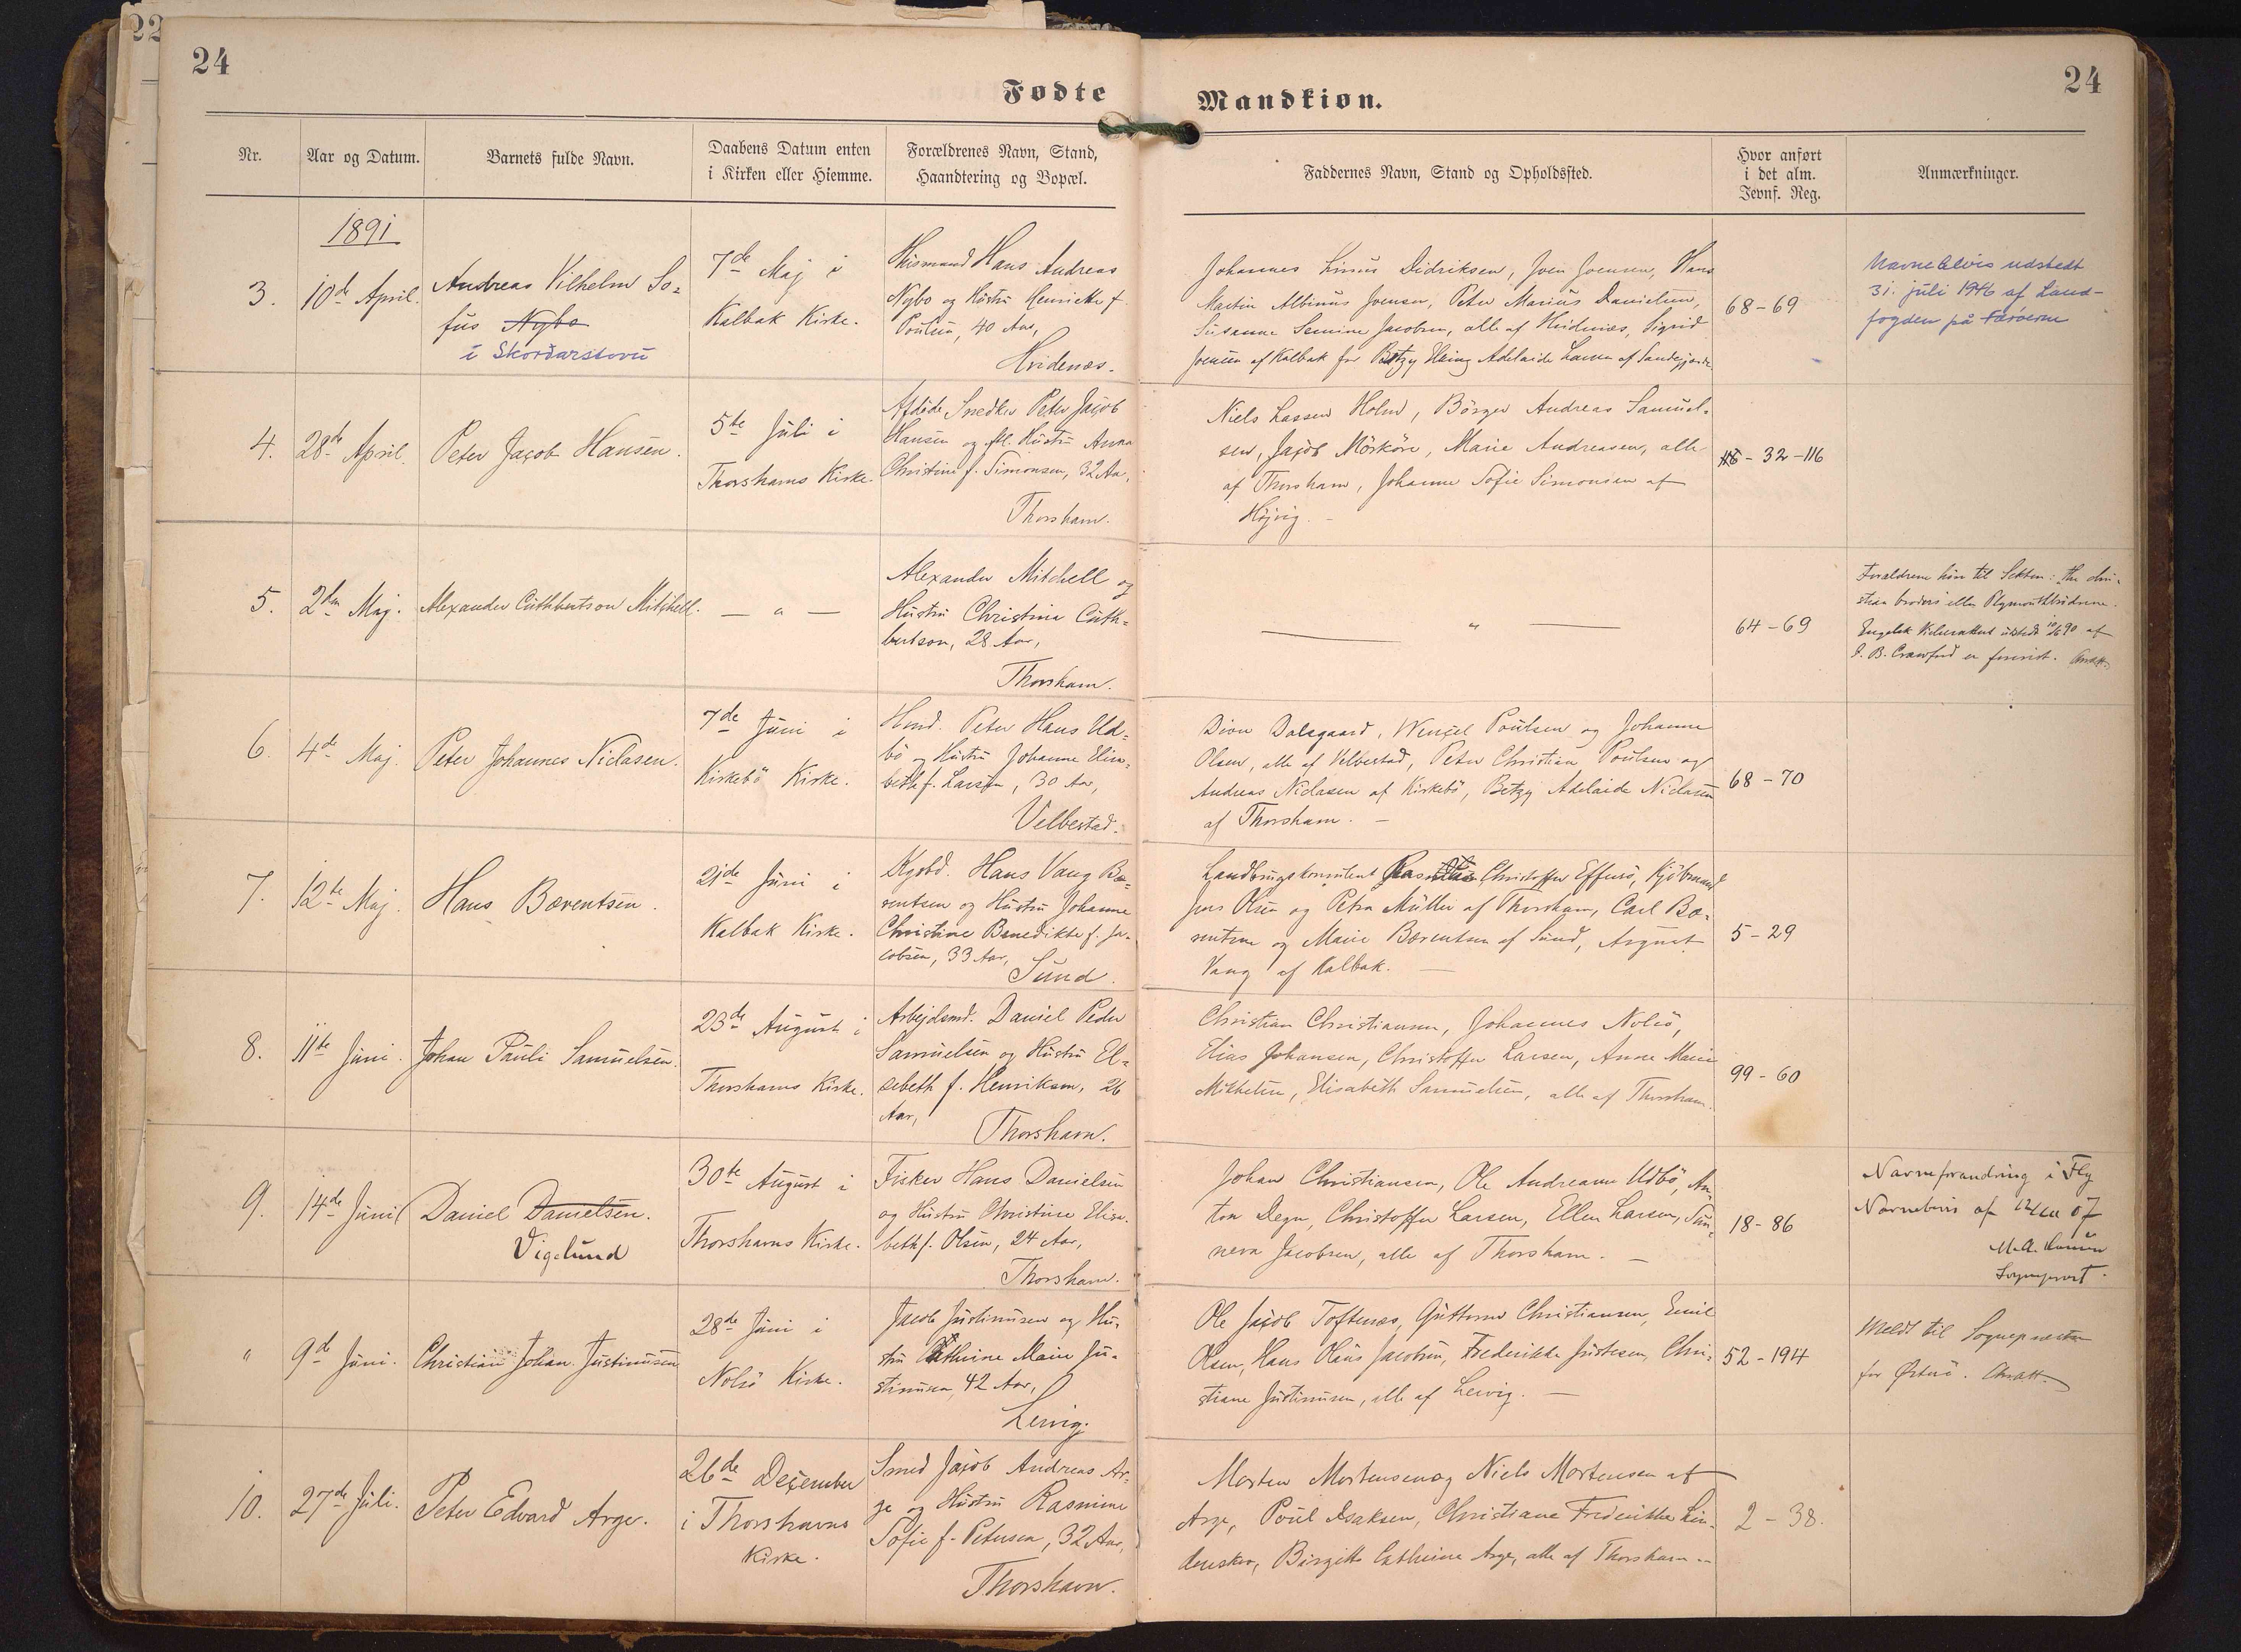 22
24
24
Fødte
Mandkiøn.
Nr.
Aar og Datum.
Barnets fulde Navn.
Daabens Datum enten
i Kirken eller Hiemme.
Forældrenes Navn, Stand,
Haandtering og Bopæl.
Faddernes Navn, Stand og Opholdssted.
Hvor anført
i det alm.
Jevnf. Reg.
Anmærkninger.
1891
3.
10de April.
Andreas Vilhelm So=
fus Nybo
i Skorðarstovu
7de Maj i
Kalbak Kirke.
Hans Andreas
Nybo og Hustru Henriette f.
Poulsen, 40 Aar,
Hvidenæs.
Johannes Linus Didriksen, Joen Joensen, Hans
Martin Albinus Joensen, Peter Marius Danielsen,
Susanne Semine Jacobsen, alle af Hvidenæs, Sigrid
Joensen af Kalbak for Betzy Adelaide Larsen af Sandegjærde
68-69
Navnebevis udstedt
31. juli 1946 af Land-
fogden på Færøerne
4.
28de April.
Peter Jacob Hansen.
5te Juli i
Thorshavns Kirke.
Afdøde Snedker Peter Jacob
Hansen og Hustru Anna
Christine f. Simonsen, 32 Aar,
Thorshavn.
Niels Lassen Holm, Børger Andreas Samuel-
sen, Jacob Mørkøre, Marie Andreasen, alle
af Thorshavn, Johanne Sofie Simonsen af
Højvig. -
- 32-116
5.
2den Maj.
Alexander Cuthbertson Mitchell.
— " —
Alexander Mitchell og
Hustru Christina Cuth=
bertson, 28 Aar,
Thorshavn.
— " —
64-69
Forældrene høre til Sekten: The chri-
stian brothers eller Plymouthbrødrene.
Engelsk Vielsesattest udstedt 10/6 90 af
J. B. Crawford er forevist.
6.
4de Maj.
Peter Johannes Niclasen.
7de Juni i
Kirkebø Kirke.
Hmd. Peter Hans Ud=
bø og Hustru Johanne Elisa=
beth f. Larsen, 30 Aar,
Velbestad.
Dion Dalsgaard, Wenzel Poulsen og Johanne
Olsen, alle af Velbestad, Peter Christian Poulsen og
Andreas Niclasen af Kirkebø, Betzy Adelaide Niclasen
af Thorshavn. -
68-70
7.
12te Maj.
Hans Bærentsen.
21de Juni i
Kalbak Kirke.
Kgsbd. Hans Vang Bæ=
rentsen og Hustru Johanne
Christine Benedikte f. Ja-
cobsen, 33 Aar,
Sund.
Landbrugskonsulent Christoffer Effersø, Kjøbmand
Jens Olsen og Petra Müller af Thorshavn, Carl Bæ-
rentsen og Marie Bærentsen af Sund, August
Vang af Kalbak. —
5-29
8.
11te Juni.
Johan Pauli Samuelsen.
23de August i
Thorshavns Kirke.
Arbejdsmd. Daniel Peder
Samuelsen og Hustru El=
sebeth f. Henriksen, 26
Aar,
Thorshavn.
Christian Christiansen, Johannes Nolsø,
Elias Johansen, Christoffer Larsen, Anne Marie
Mikkelsen, Elisabeth Samuelsen, alle af Thorshavn.
99-60
9.
14de Juni
Daniel Danielsen.
Vigelund
30te August i
Thorshavns Kirke.
Fisker Hans Danielsen
og Hustru Christine Elisa-
beth f. Olsen, 24 Aar,
Thorshavn.
Johan Christiansen, Ole Andreasen Udbø, An-
ton Degn, Christoffer Larsen, Ellen Larsen, Sun-
neva Jacobsen, alle af Thorshavn. —
18-86
Navneforandring i Flg
Navnebevis af 07
Sogneprest.
"
9de Juni.
Christian Johan Justinussen
28de Juni i
Nolsø Kirke.
Jacob Justinussen og Hu-
stru Cathrine Marie Ju-
stinussen, 42 Aar,
Lervig.
Ole Jacob Toftenæs, Guttorm Christiansen, Emil
Olsen, Hans Olaus Jacobsen, Frederikke Justesen, Chri-
stiane Justinussen, alle af Lervig. —
52-194
Meldt til Sognepræsten
for Østerø.
10.
27de Juli.
Peter Edvard Arge.
26de December
i Thorshavns
Kirke.
Smed Jacob Andreas Ar-
ge og Hustru Rasmine
Sofie f. Petersen, 32 Aar,
Thorshavn.
Morten Mortensen og Niels Mortensen af
Arge, Poul Isaksen, Christiane Frederikke Lin-
denskov, Birgitte Cathrine Arge, alle af Thorshavn. -
2-38.